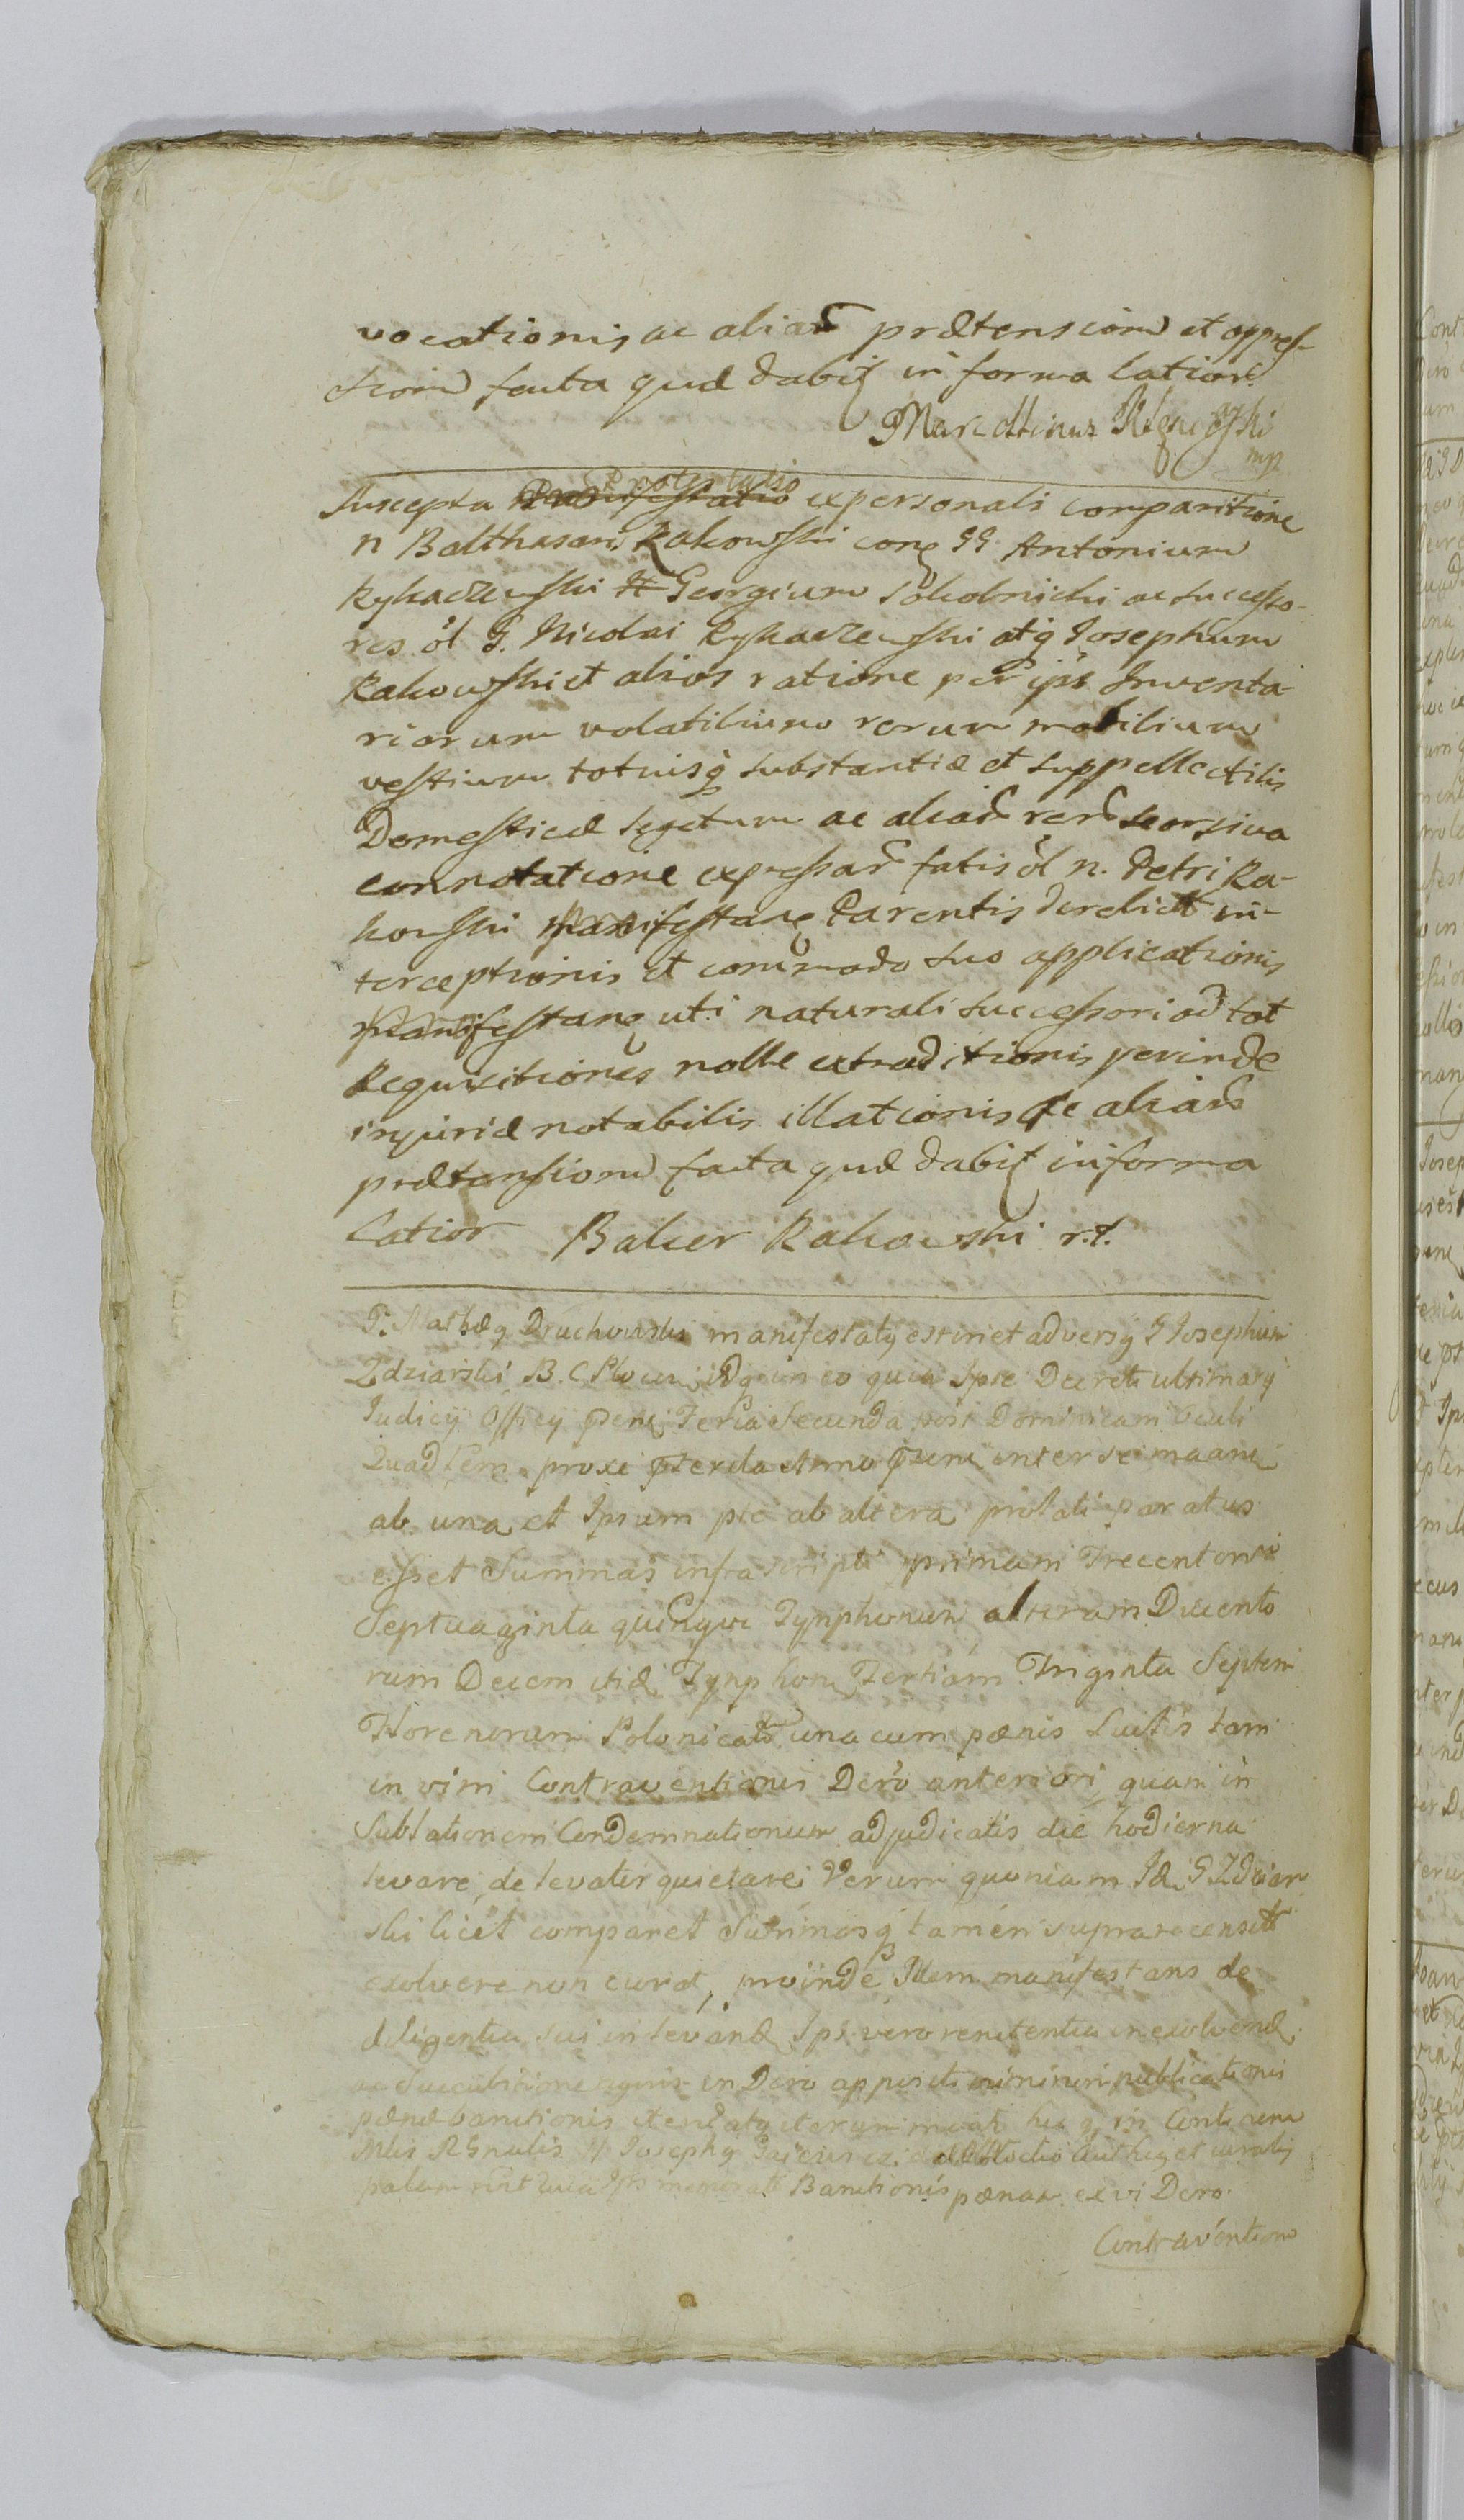 vocationis ac aliar prætension et oppres-
sion facta quæ dabit in forma latiori
Marcellinus
mp
Protestatio
Suscepta Manifestatio ex personali comparitione
n Balthasari Rakowski con GG Antonium
Rykaczewski Georgium Sokolnicki ac successo-
res ol G. Nicolai Rykaczewski atq Josephum
Rakowski et alios ratione per ips Inventa-
riorum volatilium rerum mobilium
vestium totiusq substantiæ et suppellectilis
Domesticæ segetum ac aliar rer seorsiva
connotatione expressar fatis ol n. Petri Ra-
kowski Manifestan Parentis derelict in-
terceptionis et commodo suo applicationis
Manifestan uti naturali successori ad tot
Requisitiones nolle extraditionis perinde
injuriæ notabilis illationis ac aliar
prætension facta quæ dabit in forma
latior Balcer Rakowski r.t.
P. Matheg Druchowski manifestatg est iniet adversg G Josephum
Zdziarski B. C. Plocen idq in eo quia Ipse Decreti ultimarg
Judicij Officij præn Feria Secunda post Dominicam Oculi
Quadlem proxe pterita Anno præn inter se maanc
ab una et Ipsum pte ab altera prolati paratus
esset Summas infrascripti primam Trecentor
Septuaginta quinque Tynphonum alteram Ducento
rum Decem itid Tynphon Tertiam Triginta Septem
Florenorum Polonicali una cum pœnis Luitis tam
in vim Contraventionis Dero anteriori quam in
Sublationem Condemnationum adjudicatis die hodierna
levare, de levatis quietare Verum quoniam Id G Zdziar
ski licet comparet Summasq tamen suprarecensitt
exolvere non curat, proinde Idem manifestans de
diligentia sui in levand Ips vero renitentia in exolvend
in Dero appositi minimi publicationis
pœnæ banitionis
Josephg
Banitionis pœnam ex vi Dero
Contravention